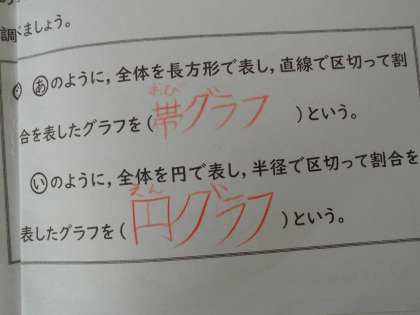 調べましょう。
あのように，全体を長方形で表し，直線で区切って割
おび
合を表したグラフを（帯グラフ）という。
いのように，全体を円で表し，半径で区切って割合を
えん
表したグラフを（円グラフ）という。